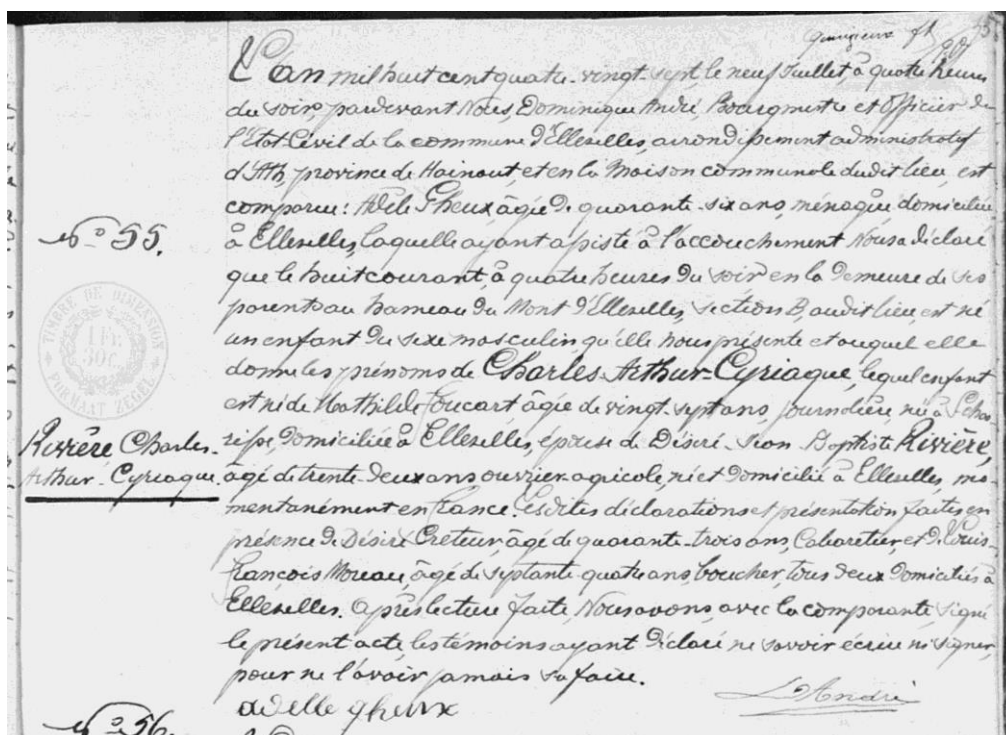 45
L'an mil huit cent quatre-vingt-sept le neuf Juillet à quatre heures
du soir, pardevant Nous, Dominique André, Bourgmestre et Officier de
l'Etat-Civil de la commune d'Ellezelles, arrondissement administratif
d'Ath, province de Hainaut, et en la Maison communale dudit lieu, est
comparue: Adèle Gheux, âgée de quarante-six ans, ménagère domiciliée
à Ellezelles, laquelle ayant assisté à l'accouchement Nous a déclaré
que le huit courant, à quatre heures du soir en la demeure de ses
parents au hameau du Mont d'Ellezelles, section B, audit lieu, est né
un enfant du sexe masculin, qu'elle nous présente et auquel elle
donne les prénoms de Charles-Arthur-Cyriaque, lequel enfant
est né de Mathilde Foucart âgée de vingt-sept ans, journalière, née à
domiciliée à Ellezelles, épouse de Désiré-Jean-Baptiste Rivière,
âgé de trente-deux ans ouvrier agricole, né et domicilié à Ellezelles, mo-
mentanément en France. Lesdites déclarations et présentation faites en
présence de Désiré Creteur, âgé de quarante-trois ans, Cabaretier, et de Louis-
François Moreau, âgé de septante-quatre ans boucher, tous deux domiciliés à
Ellezelles. Après lecture faite, Nous avons, avec la comparante, signé
le présent acte, les témoins ayant déclaré ne savoir écrire ni signer,
pour ne l'avoir jamais su faire.
adelle gheux
D André
N° 55.
TIMBRE DE DIMENSION
1 Fr.
30c.
FORMAAT ZEGEL
Rivière Charles-
Arthur-Cyriaque.
N° 56.